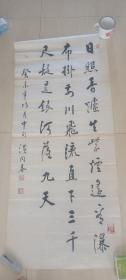 日照香爐生紫煙遙看瀑
布掛前川飛流直下三千
尺疑是銀河落九天
癸未年